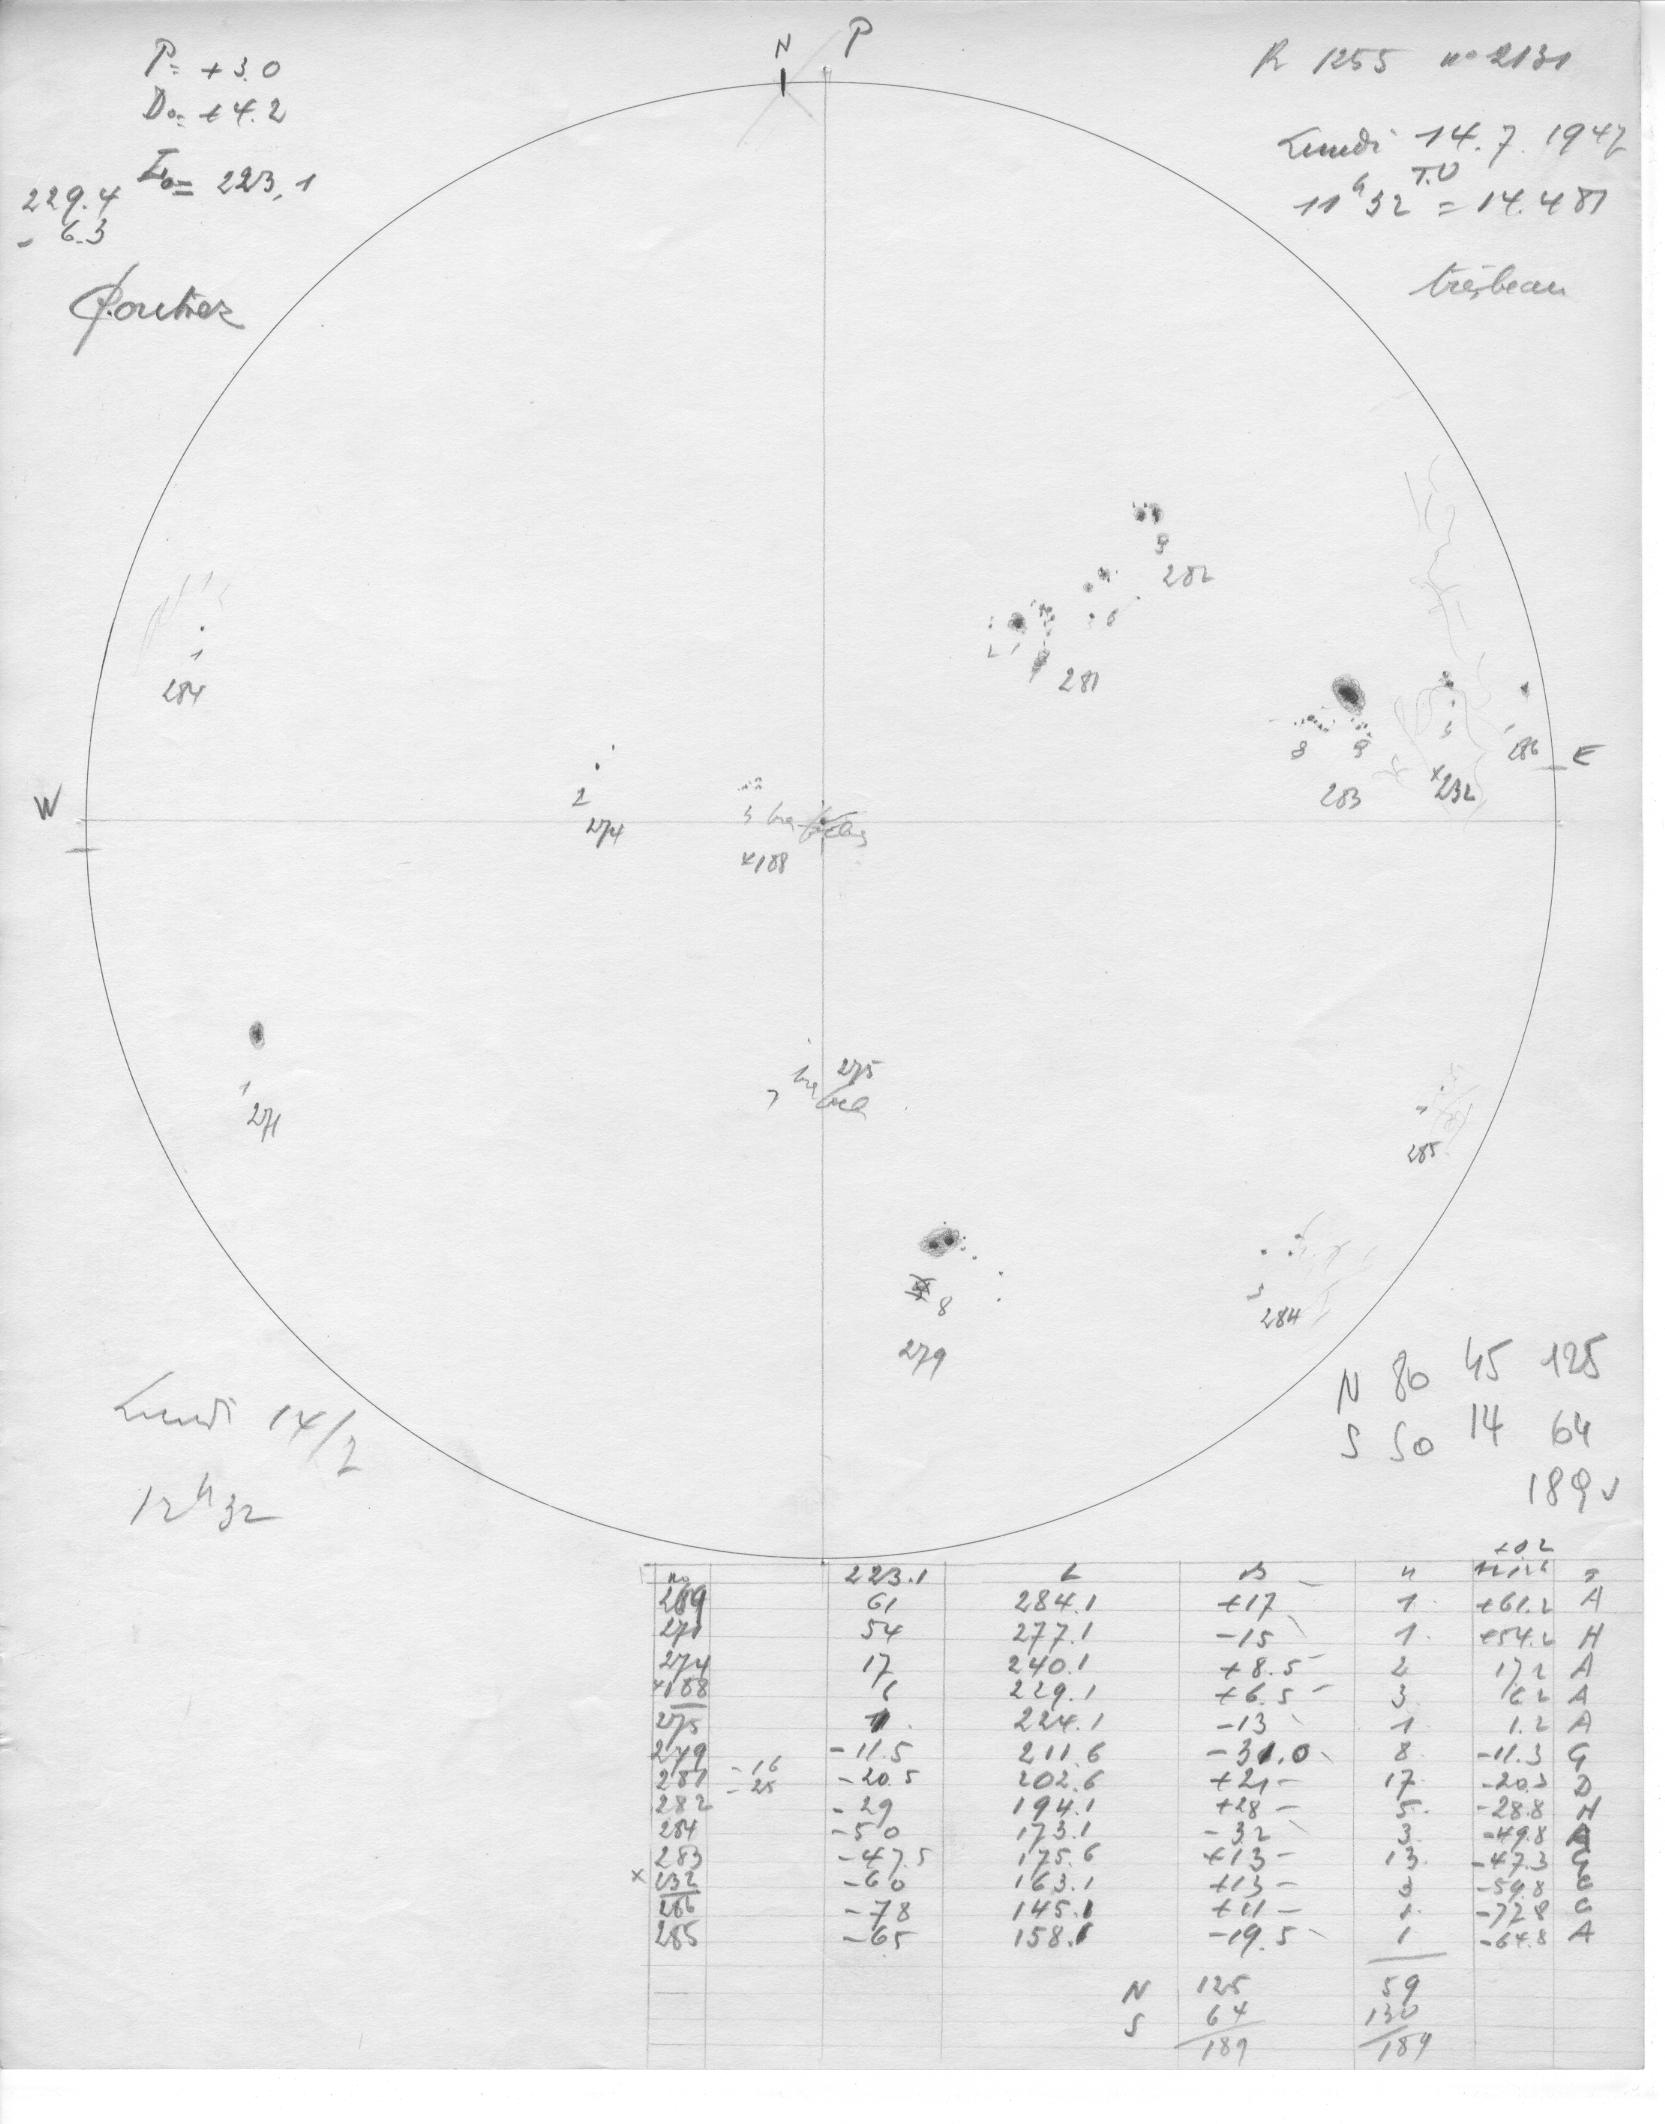 N P
P= +3.0
D0= +4.2
L0= 223,1
229.4
- 6.3
R 1255 no 2131
Lundi 14.7.1947
T.U
11h32 = 14.481
très beau
W
E
9
282
6
281
1
284
2
274
3
×188
8
9
283
3
×232
1
286
1
271
275
1
285
8
279
3
284
N 80 45 125
S 50 14 64
189
Lundi 14/7
12h32
no 223.1 L B n
289 61 284.1 +17 1 +61.2 A
271 54 277.1 -15 1 +54.2 H
274 17 240.1 +8.5 2 17.2 A
×188 6 229.1 +6.5 3 6.2 A
275 1 224.1 -13 1 1.2 A
279 -11.5 211.6 -31.0 8 -11.3 G
281 -16 -25 -20.5 202.6 +21 17 -20.3 D
282 -29 194.1 +28 5 -28.8 H
284 -50 173.1 -32 3 -49.8
283 -47.5 175.6 +13 13 -47.3 G
×232 -60 163.1 +13 3 -59.8
286 -78 145.1 +11 1 -77.8 G
285 -65 158.1 -19.5 1 -64.8 A
N 125 59
S 64 130
189 189